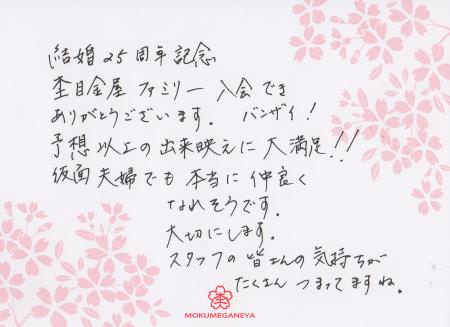 結婚25周年記念
杢目金屋 ファミリー 入会でき
ありがとうございます。 バンザイ!
予想以上の出来映えに大満足!!
仮面夫婦でも本当に仲良く
なれそうです。
大切にします。
スタッフの皆さんの気持ちが
たくさん つまってますね。
杢
MOKUMEGANEYA